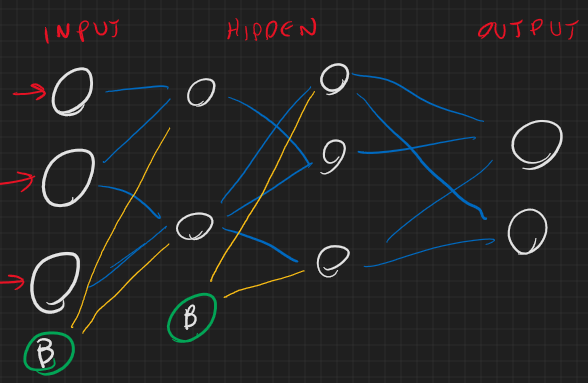 INPUT HIDDEN OUTPUT
B
B